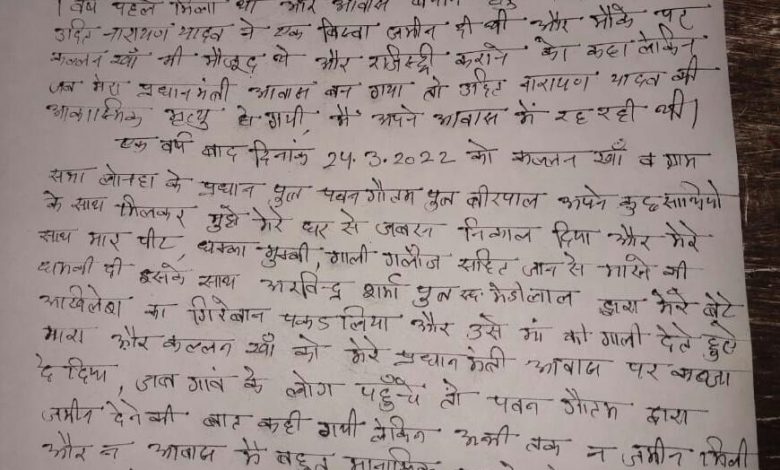 वर्ष पहले मिला था और आवास बनाने हेतु
उदित नारायण यादव ने एक बिस्वा जमीन दी थी और मौके पर
कल्लन खाँ भी मौजूद थे और रजिस्ट्री कराने को कहा लेकिन
जब मेरा प्रधानमंत्री आवास बन गया तो उदित नारायण यादव की
आकास्मिक मृत्यु हो गयी, मैं अपने आवास में रह रही थी।
एक वर्ष बाद दिनांक 24.3.2022 को कल्लन खाँ व ग्राम
सभा के प्रधान पुत्र पवन गौतम पुत्र वीरपाल अपने कुछ साथियो
के साथ मिलकर मुझे मेरे घर से जबरन निकाल दिया और मेरे
साथ मार पीट, धक्का मुक्की, गाली गलौज सहित जान से मारने की
धमकी दी इसके साथ अरविन्द्र शर्मा पुत्र स्व. मेडीलाल द्वारा मेरे बेटे
अखिलेश का गिरेबान पकड लिया और उसे मां की गाली देते हुये
मारा और कल्लन खाँ को मेरे प्रधानमंत्री आवास पर कब्जा
दे दिया, जब गांव के लोग पहुँचे तो पवन गौतम द्वारा
जमीन देने की बात कही गयी लेकिन अभी तक न जमीन मिली
और न आवास मैं बहुत मानसिक